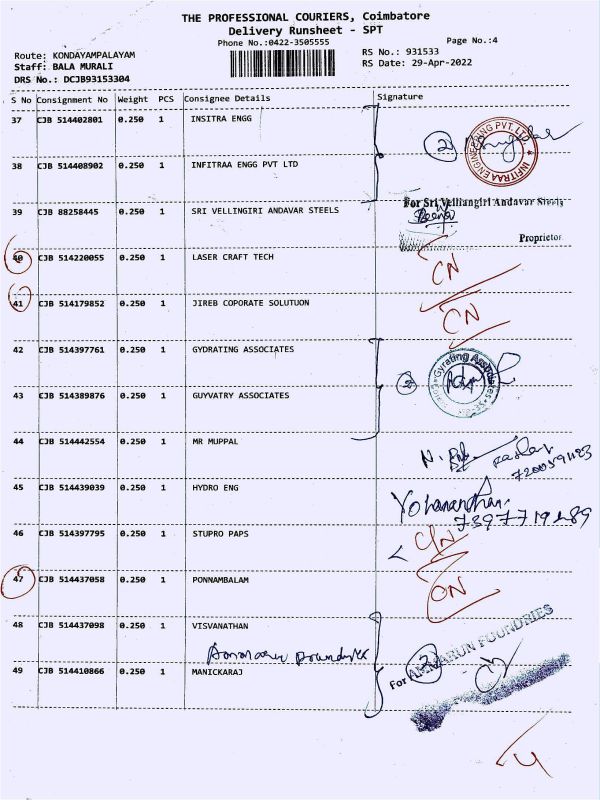 THE PROFESSIONAL COURIERS, Coimbatore
Delivery Runsheet - SPT
Phone No.:0422-3505555
Page No.:4
Route: KONDAYAMPALAYAM
RS No.: 931533
Staff: BALA MURALI
RS Date: 29-Apr-2022
DRS No.: DCJB93153304
S No Consignment No Weight PCS Consignee Details Signature
37 CJB 514402801 0.250 1 INSITRA ENGG
2
INFITRAA ENGINEERING PVT LTD
38 CJB 514408902 0.250 1 INFITRAA ENGG PVT LTD
39 CJB 88258445 0.250 1 SRI VELLINGIRI ANDAVAR STEELS
For Sri Velliangiri Andavar Steels
Proprietor
40 CJB 514220055 1 0.250 1 LASER CRAFT TECH
CN
41 CJB 514179852 0.250 1 JIREB COPORATE SOLUTUON
CN
42 CJB 514397761 0.250 1 GYDRATING ASSOCIATES
Gyrating Associates
43 CJB 514389876 0.250 1 GUYVATRY ASSOCIATES
44 CJB 514442554 0.250 1 MR MUPPAL
45 CJB 514439039 0.250 1 HYDRO ENG
46 CJB 514397795 0.250 1 STUPRO PAPS
C/N
47 CJB 514437058 0.250 1 PONNAMBALAM
CN
48 CJB 514437098 0.250 1 VISVANATHAN
For AMMARUN FOUNDRIES
3
49 CJB 514410866 0.250 1 MANICKARAJ
4